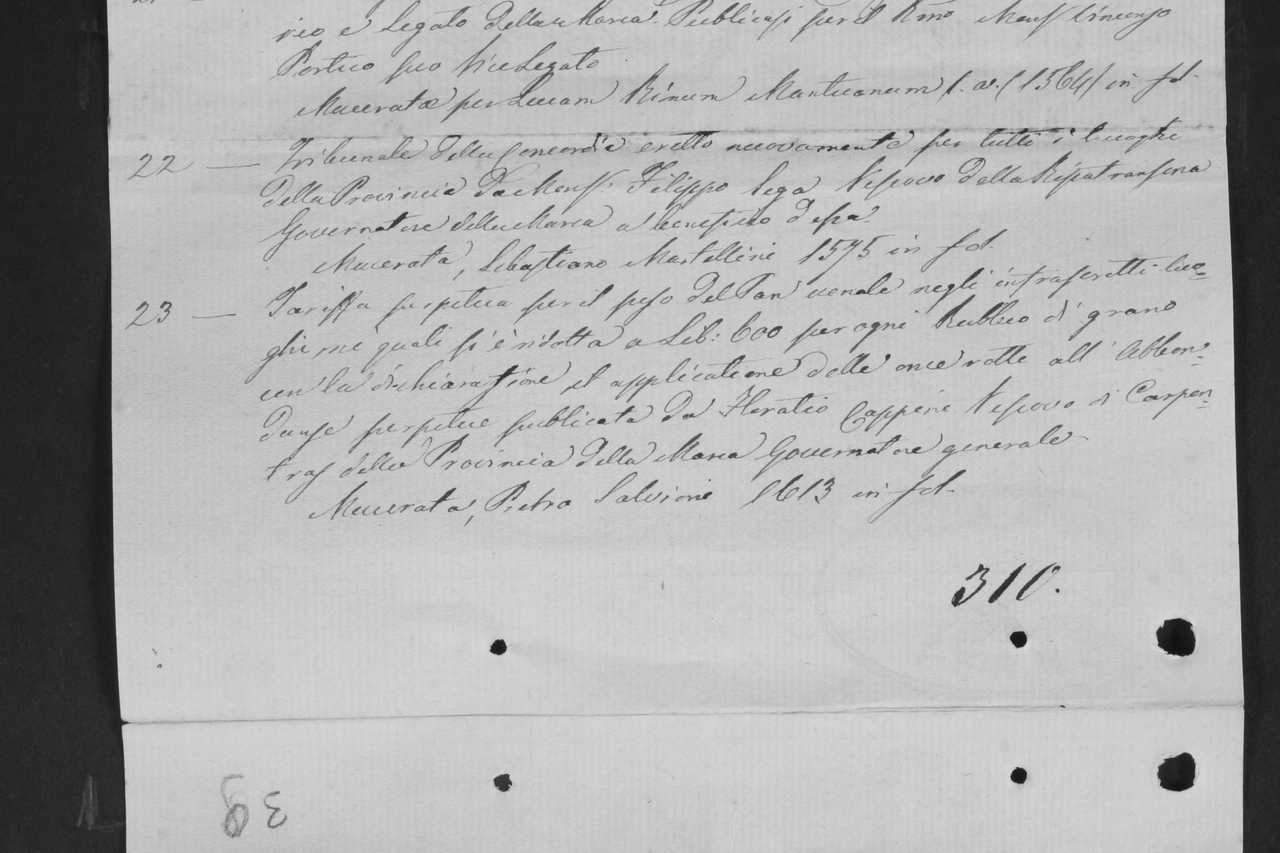 rio e Legato della Marca. Publicasi per il Rmo Monss Vincenzo
Portico suo Vice Legato
Maceratæ per Lucam Binum Mantuanum (s. a. (1564) in fol.
22 — Tribunale della Concordia eretto nuovamente per tutti i luoghi
della Provincia da Monss. Filippo Sega Vescovo della Ripatransona
Governatore della Marca a beneficio d'essa.
Macerata, Sebastiano Martellini 1575 in fol.
23 — Tariffa perpetua per il peso del Pan venale negli infrascritti luo=
ghi ne quali si è ridotta a Lib: 600 per ogni Rubbio di grano
con la dichiaratione et applicatione delle once rotte all' Abbon=
danze perpetue publicata da Horatio Cappone Vescovo di Carpen=
tras della Provincia della Marca Governatore generale
Macerata, Pietro Salvioni 1613 in fol.
310.